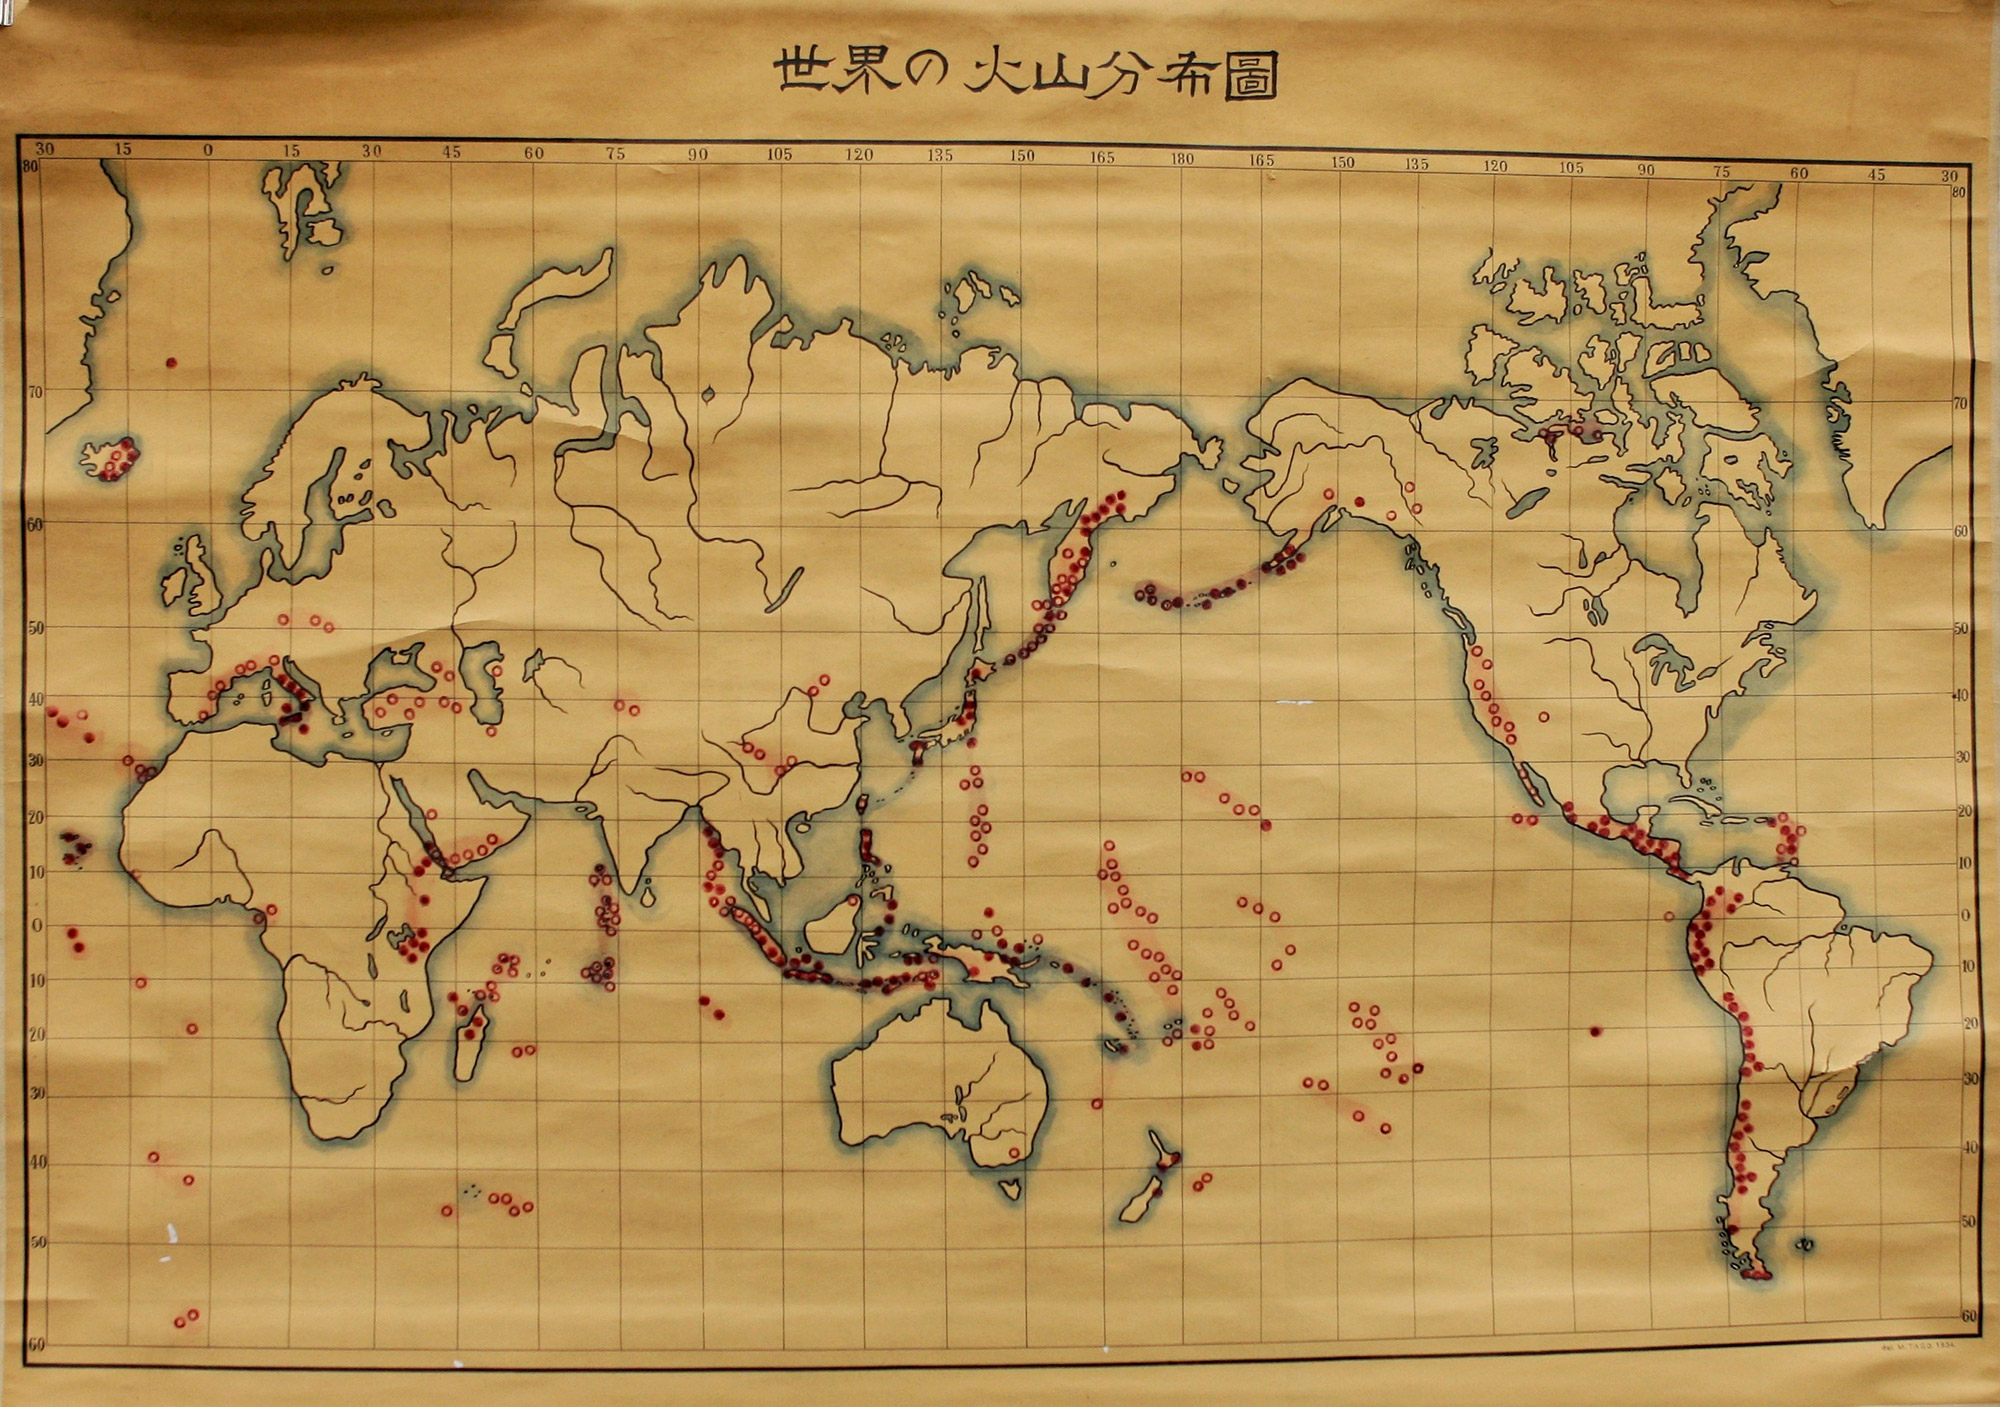 世界の火山分布圖
30 15 0 15 30 45 60 75 90 105 120 135 150 165 180 165 150 135 120 105 90 75 60 45 30
80 80
70 70
60 60
50 50
40 40
30 30
20 20
10 10
0 0
10 10
20 20
30 30
40 40
50 50
60 60